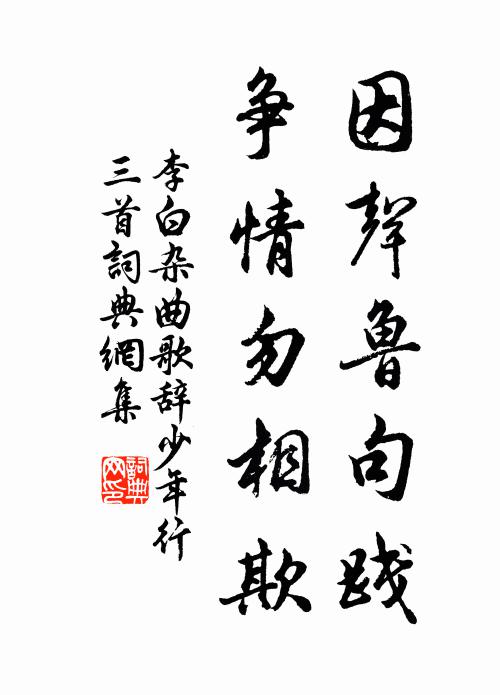 因聲魯句踐
争情勿相欺
李白杂曲歌辞少年行
三首詞典網集
詞典
网印